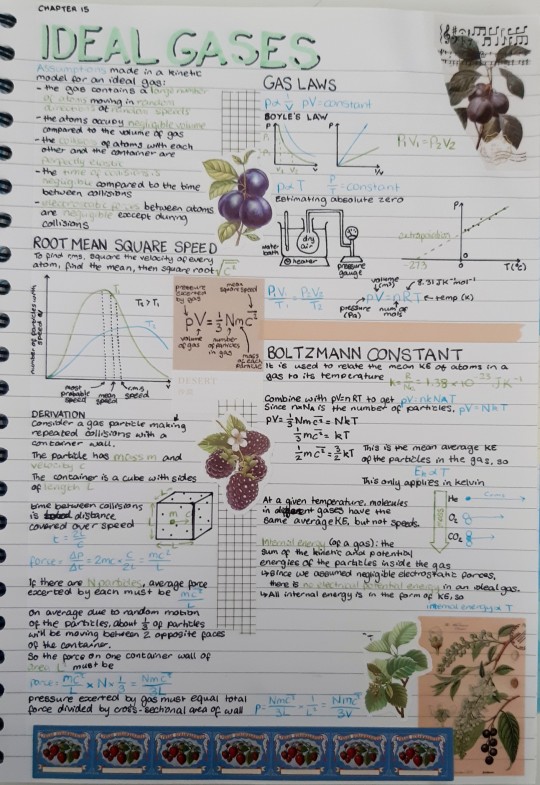 CHAPTER 15
IDEAL GASES
Assumptions made in a kinetic
model for an ideal gas:
- the gas contains a large number
of atoms moving in random
directions at random speeds
- the atoms occupy negligible volume
compared to the volume of gas
- the collisions of atoms with each
other and the container are
perfectly elastic
- the time of collisions is
negligible compared to the time
between collisions
- electrostatic forces between atoms
are negligible except during
collisions
ROOT MEAN SQUARE SPEED
To find rms, square the velocity of every
atom, find the mean, then square root √c̅²
number of particles with
speed c
T₁
T₂ > T₁
T₂
most
probable
speed
mean
speed
r.m.s
speed
pressure
exerted
by gas
mean
square speed
pV = ⅓Nmc̅²
volume
of gas
number of
particles
in gas
mass
of each
particle
DESERT
DERIVATION
Consider a gas particle making
repeated collisions with a
container wall.
The particle has mass m and
velocity c
The container is a cube with sides
of length L
time between collisions
is distance
covered over speed
t = 2L/c
force = Δp/Δt = 2mc × c/2L = mc²/L
If there are N particles, average force
exerted by each must be mc̅²/L
On average due to random motion
of the particles, about ⅓ of particles
will be moving between 2 opposite faces
of the container.
So the force on one container wall of
area L² must be
force = mc̅²/L × N × ⅓ = Nmc̅²/3L
pressure exerted by gas must equal total
force divided by cross-sectional area of wall
p = Nmc̅²/3L × 1/L² = Nmc̅²/3V
GAS LAWS
p ∝ 1/V pV = constant
BOYLE'S LAW
P
V₁ V₂ V
P
1/V
P₁V₁ = P₂V₂
p ∝ T P/T = constant
Estimating absolute zero
water
bath
dry
air
heater
pressure
gauge
P
extrapolating
-273
0
T(°C)
P₁V₁/T₁ = P₂V₂/T₂
volume
(m³)
8.31 JK⁻¹mol⁻¹
pV = nRT
temp (K)
pressure
(Pa)
num of
mols
BOLTZMANN CONSTANT
It is used to relate the mean KE of atoms in a
gas to its temperature k = R/NA = 1.38 × 10⁻²³ JK⁻¹
Combine with pV=nRT to get pV=nkNAT
Since nxNA is the number of particles, pV = NkT
pV = ⅓Nmc̅² = NkT
⅓mc̅² = kT
½mc̅² = 3/2 kT
This is the mean average KE
of the particles in the gas, so
Ek ∝ T
This only applies in kelvin
At a given temperature, molecules
in different gases have the
same average KE, but not speeds.
mass
He
O₂
CO₂
Internal energy (of a gas): the
sum of the kinetic and potential
energies of the particles inside the gas
↳ since we assumed negligible electrostatic forces,
there is no electrical potential energy in an ideal gas.
↳ All internal energy is in the form of KE, so
internal energy ∝ T